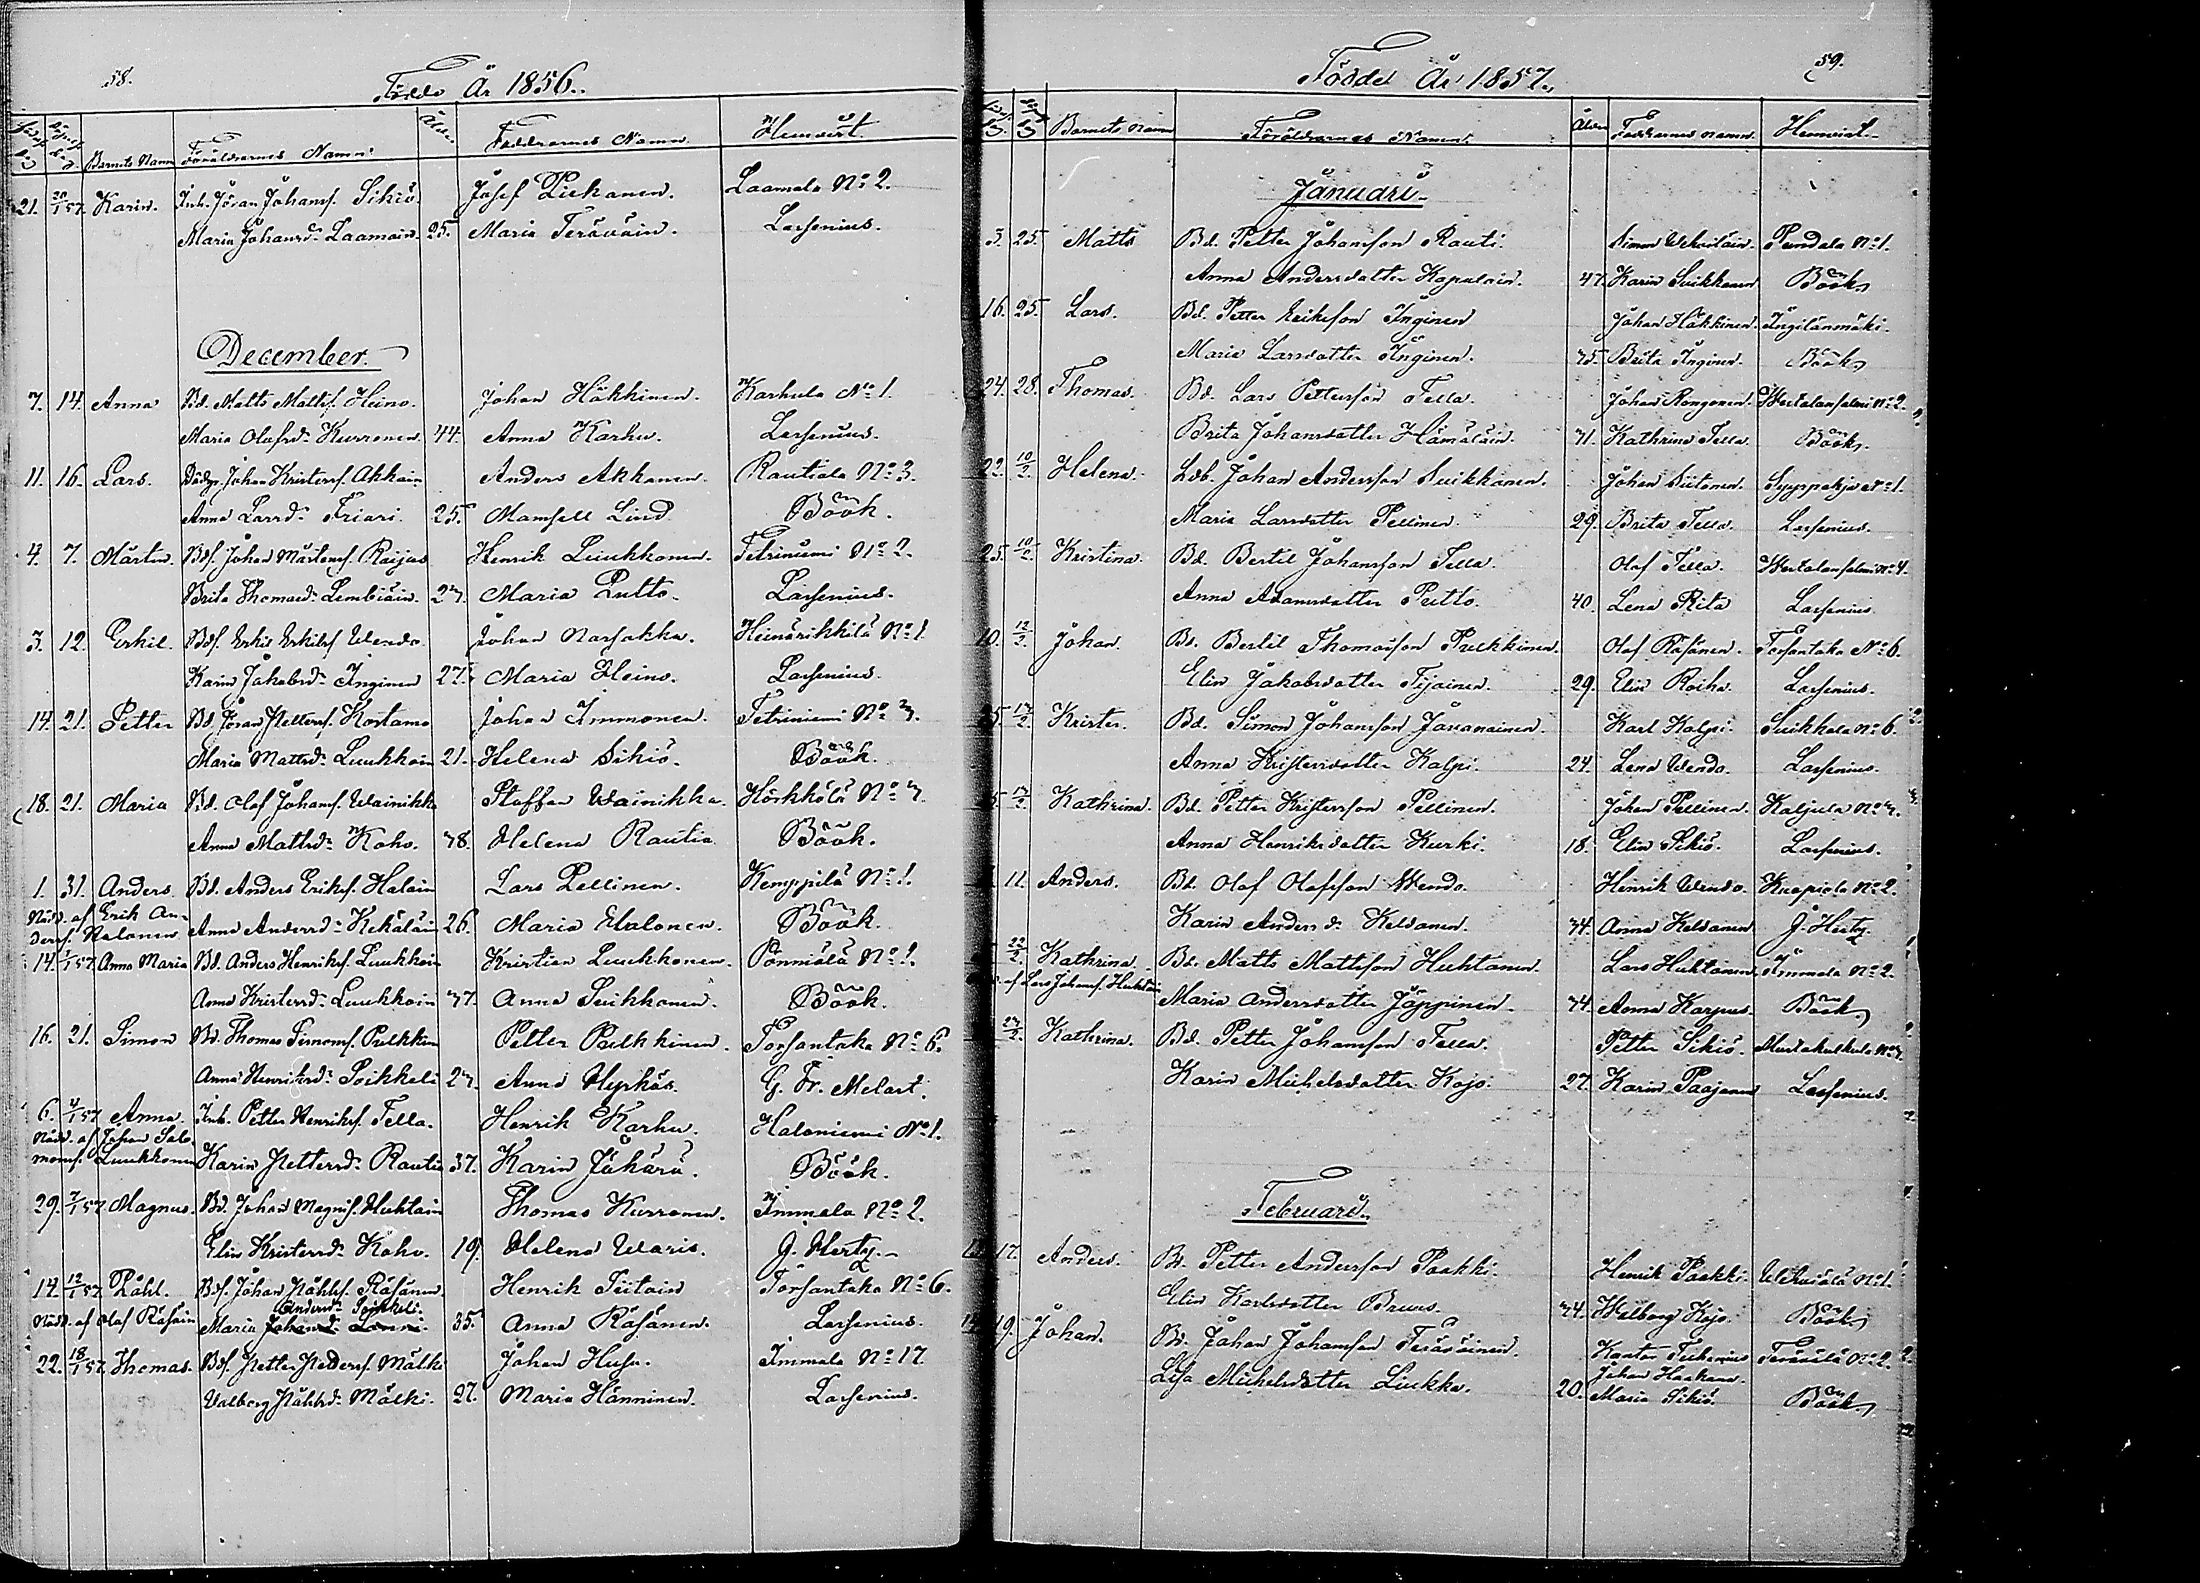 58.
Födde År 1856.
Barnets Namn Föräldrarnes Namn. Ålder Faddrarnes Namn. Hemvist.
21. 20/1 57. Karin. Inh. Jöran Johansf. Sikiö. Josef Piekanen. Laamala No 2.
Maria Johansdr Laamain. 25. Maria Teräväin. Larsenius.
December.
7. 14. Anna Bd. Matts Mattsf. Heino. Johan Häkkinen. Karhula No 1.
Maria Olofsdr Kurronen. 44. Anna Karhu. Larsenius.
11. 16. Lars. Johan Kristersf. Akkain Anders Akkanen. Rautiala No 3.
Anna Larsdr Friari. 25. Mamsell Lind Böök.
4. 7. Mårten. Bdf. Johan Mårtensf. Raijas Henrik Luukkonen. Tetriniemi No 2.
Brita Thomasdr Lembiäin. 27. Maria Putto. Larsenius.
3. 12. Erkil. Bdf. Erkil Erkilsf. Wendo Johan Narsakka. Heinärikkilä No 1.
Karin Jakobsdr Inginen 27. Maria Heino. Larsenius.
14. 21. Petter Bd. Jöran Pettersf. Kostamo Johan Immonen. Tetriniemi No 7.
Maria Mattsdr Luukkain 21. Helena Sikiö. Böök.
18. 21. Maria Bd. Olof Johansf. Wainikka Staffan Wainikka. Hörkkölä No 7.
Anna Mattsdr Koho. 38. Helena Rautia Böök.
1. 31. Anders. Bd. Anders Eriksf. Halain Lars Pellinen. Kemppilä No 1.
Nödd. af Erik An-
dersf. Halonen Anna Andersdr Kekäläin 26. Maria Halonen. Böök.
14. 1/1 57. Anna Maria Bd. Anders Henriksf. Luukkain Kristian Luukkonen. Pönniälä No 1.
Anna Kristersdr Luukkain 37. Anna Suikkanen. Böök.
16. 21. Simon Bd. Thomas Simonsf. Pulkkin Petter Pulkkinen. Torsantaka No 6.
Anna Henriksdr Poikkeli 27. Anna Hyrkäs. G. Fr. Melart.
6. 4/1 57 Anna. Inh. Petter Henriksf. Tella. Henrik Karhu. Haloniemi No 1.
Nödd. af Johan Salo-
monsf. Luukkonen Karin Pettersdr Rautia 37. Karin Jääärä. Böök.
29. 7/1 57 Magnus. Bd. Johan Magnisf. Huhtain Thomas Kurronen. Immala No 2.
Elin Kristersdr Koho. 19. Helena Waris. J. Hertz.
14. 12/1 57 Påhl. Bdf. Johan Påhlsf. Räsänen. Henrik Tiitain Torsantaka No 6.
Andersdr Poikkeli.
Nödd. af Olof Räsäin Maria Johansdr Lonni. 35. Anna Räsänen. Larsenius.
22. 18/1 57. Thomas. Bdf. Petter Pedersf. Mälk Johan Husu. Immala No 17
Valborg Påhlsdr Mälki. 27. Maria Hänninen. Larsenius.
59.
Födde År 1857.
Barnets namn Föräldrarnes Namn. Ålder Faddrarnes namn. Hemvist.
Januari.
3. 25. Matts Bd. Petter Johansson Rauti. Simon Ukonläin. Pundala No 1.
Anna Andersdotter Kapalain. 47. Karin Suikkanen Böök
16. 25. Lars. Bd. Petter Eriksson Inginen Johan Häkkinen. Ingilänmäki.
Maria Larsdotter Inginen. 35. Brita Inginen. Böök
24. 28. Thomas. Bd. Lars Pettersson Tella. Johan Rongonen. Wertalansalmi No 2.
Brita Johansdotter Hämäläin. 31. Kathrina Tella. Böök.
22. 10/2 Helena. Ldb. Johan Andersson Suikkanen. Johan Siitonen. Syyspohja No 1.
Maria Larsdotter Pellinen. 29. Brita Tella. Larsenius.
25. 10/2 Kristina. Bd. Bertil Johansson Tella. Olof Tella. Wertalansalmi No 4.
Anna Adamsdotter Putto. 40. Lena Rita Larsenius.
10. 12/2 Johan. Bd. Bertil Thomasson Pulkkinen. Olof Räsänen. Torsantaka No 6.
Elin Jakobsdotter Tijainen. 29. Elin Roiha. Larsenius.
25. 17/2 Krister. Bd. Simon Johansson Javanainen. Karl Kalpi. Suikkala No 6.
Anna Kristersdotter Kalpi. 24. Lena Wendo. Larsenius.
17/2 Kathrina. Bd. Petter Kristersson Pellinen. Johan Pellinen. Kaljula No 7.
Anna Henriksdotter Kurki. 18. Elin Sikiö. Larsenius.
11. Anders. Bd. Olof Olofsson Wendo. Henrik Wendo. Kuapiala No 2.
Karin Andersdr Keldanen. 34. Anna Keldanen J. Hertz
22/2 Kathrina Bd. Matts Mattsson Huhtanen. Lars Huhtanen Immala No 2.
af Lars Johansf. Huhtain Maria Andersdotter Jäppinen. 34. Anna Karpus. Böök
27/2 Kathrina. Bd. Petter Johansson Tella. Petter Sikiö. No 7.
Karin Michelsdotter Kojo. 27. Karin Paajanen Larsenius.
Februari.
17. Anders. Bd. Petter Andersson Paakki. Henrik Paakki. No 1.
Elin Karlsdotter Bruus. 34. Walborg Kojo. Böök
19. Johan. Bd. Johan Johansson Teräväinen. Kantor Teräälä No 2.
Johan
Lisa Michelsdotter Liukko. 20. Maria Sikiö. Böök